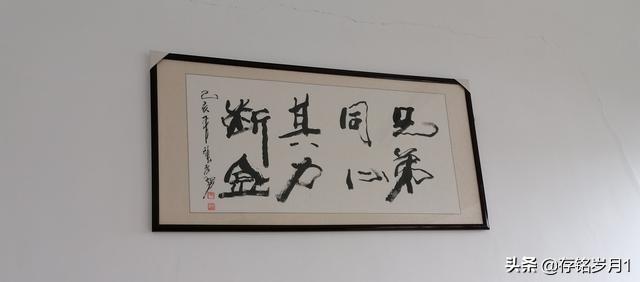 兄弟
同心
其力
断金
己亥
头条 @存铭岁月1